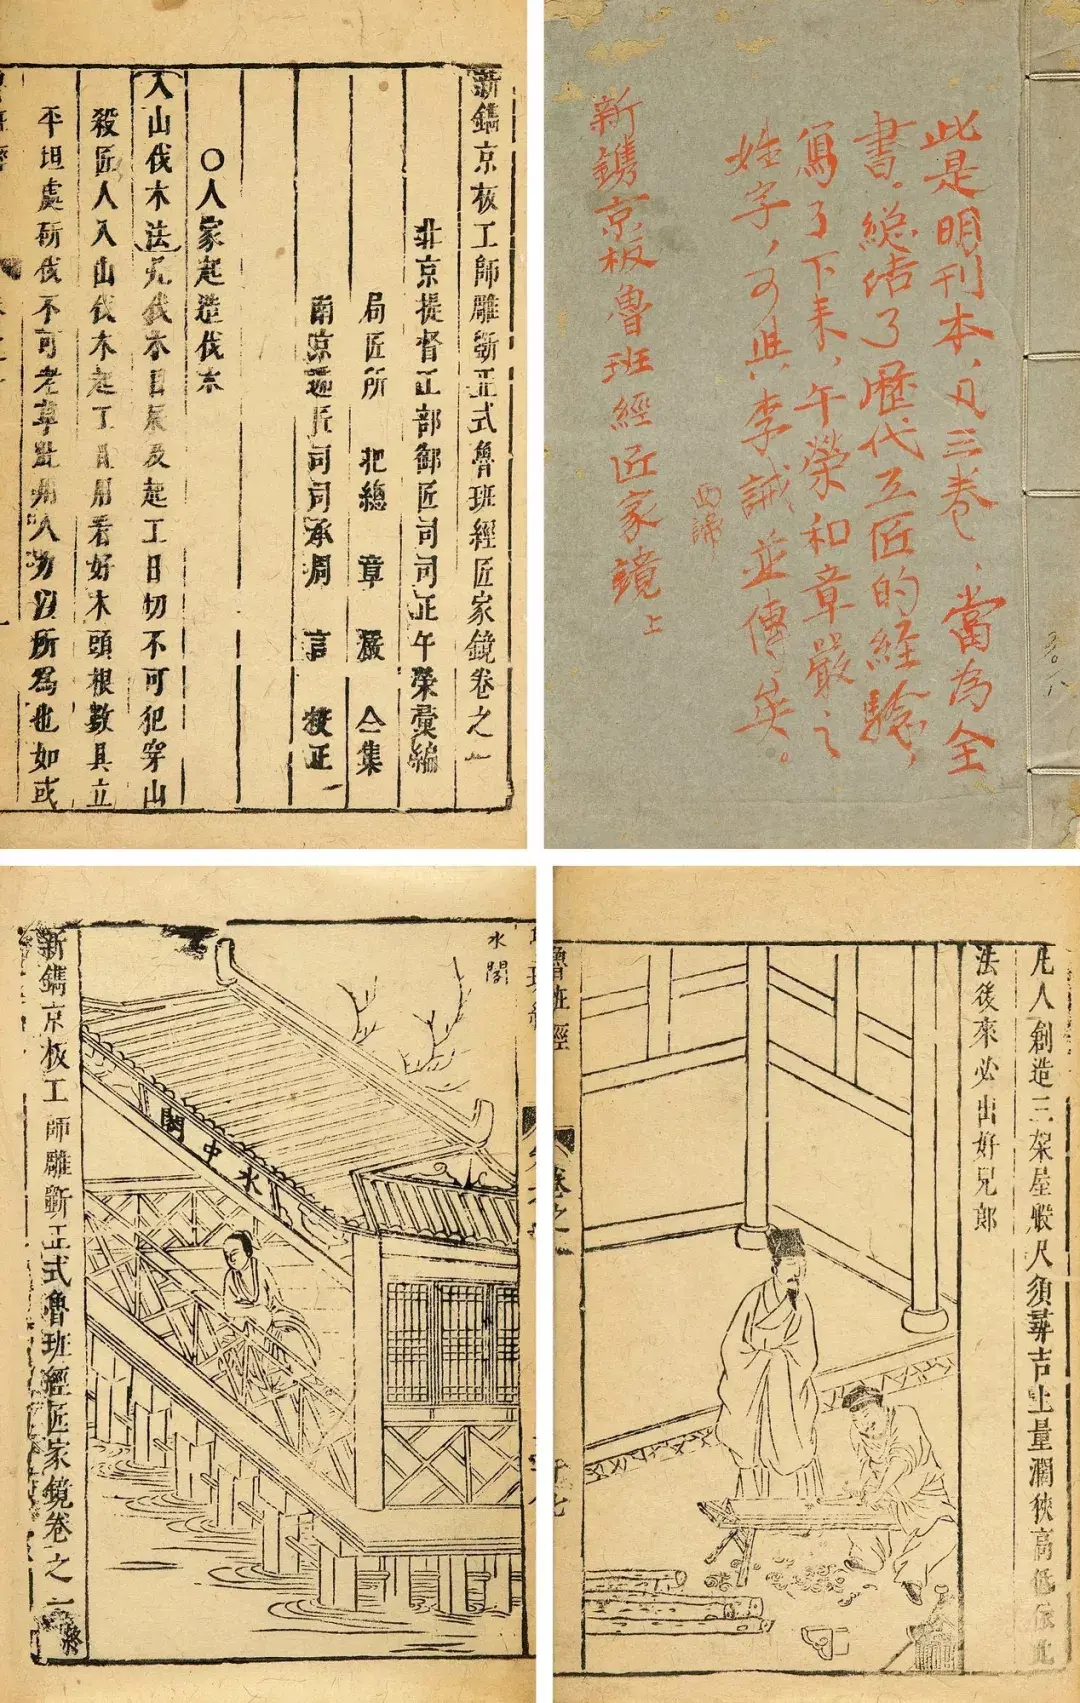 新鐫京板工師雕斲正式魯班經匠家鏡卷之一
北京提督工部御匠司司正午榮彙編
局匠所 把總 章嚴 仝集
南京遞匠司司承周言 校正
○人家起造伐木
入山伐木法凡伐木日辰及起工日切不可犯穿山
殺匠人入山伐木起工且用看好木頭根數具立
平坦處斫伐不可老草此用人力以所為也如或
此是明刊本,凡三卷,當為全
書。總結了歷代工匠的經驗,
寫了下来,午榮和章嚴之
姓字,可與李誡並傳矣。
西諦
新鐫京板魯班經匠家鏡 上
水閣
水中閣
新鐫京板工師雕斲正式魯班經匠家鏡卷之一終
凡人創造三架屋般尺須尋吉上量濶狹高低依此
法後來必出好兒郎
魯班經
卷之一